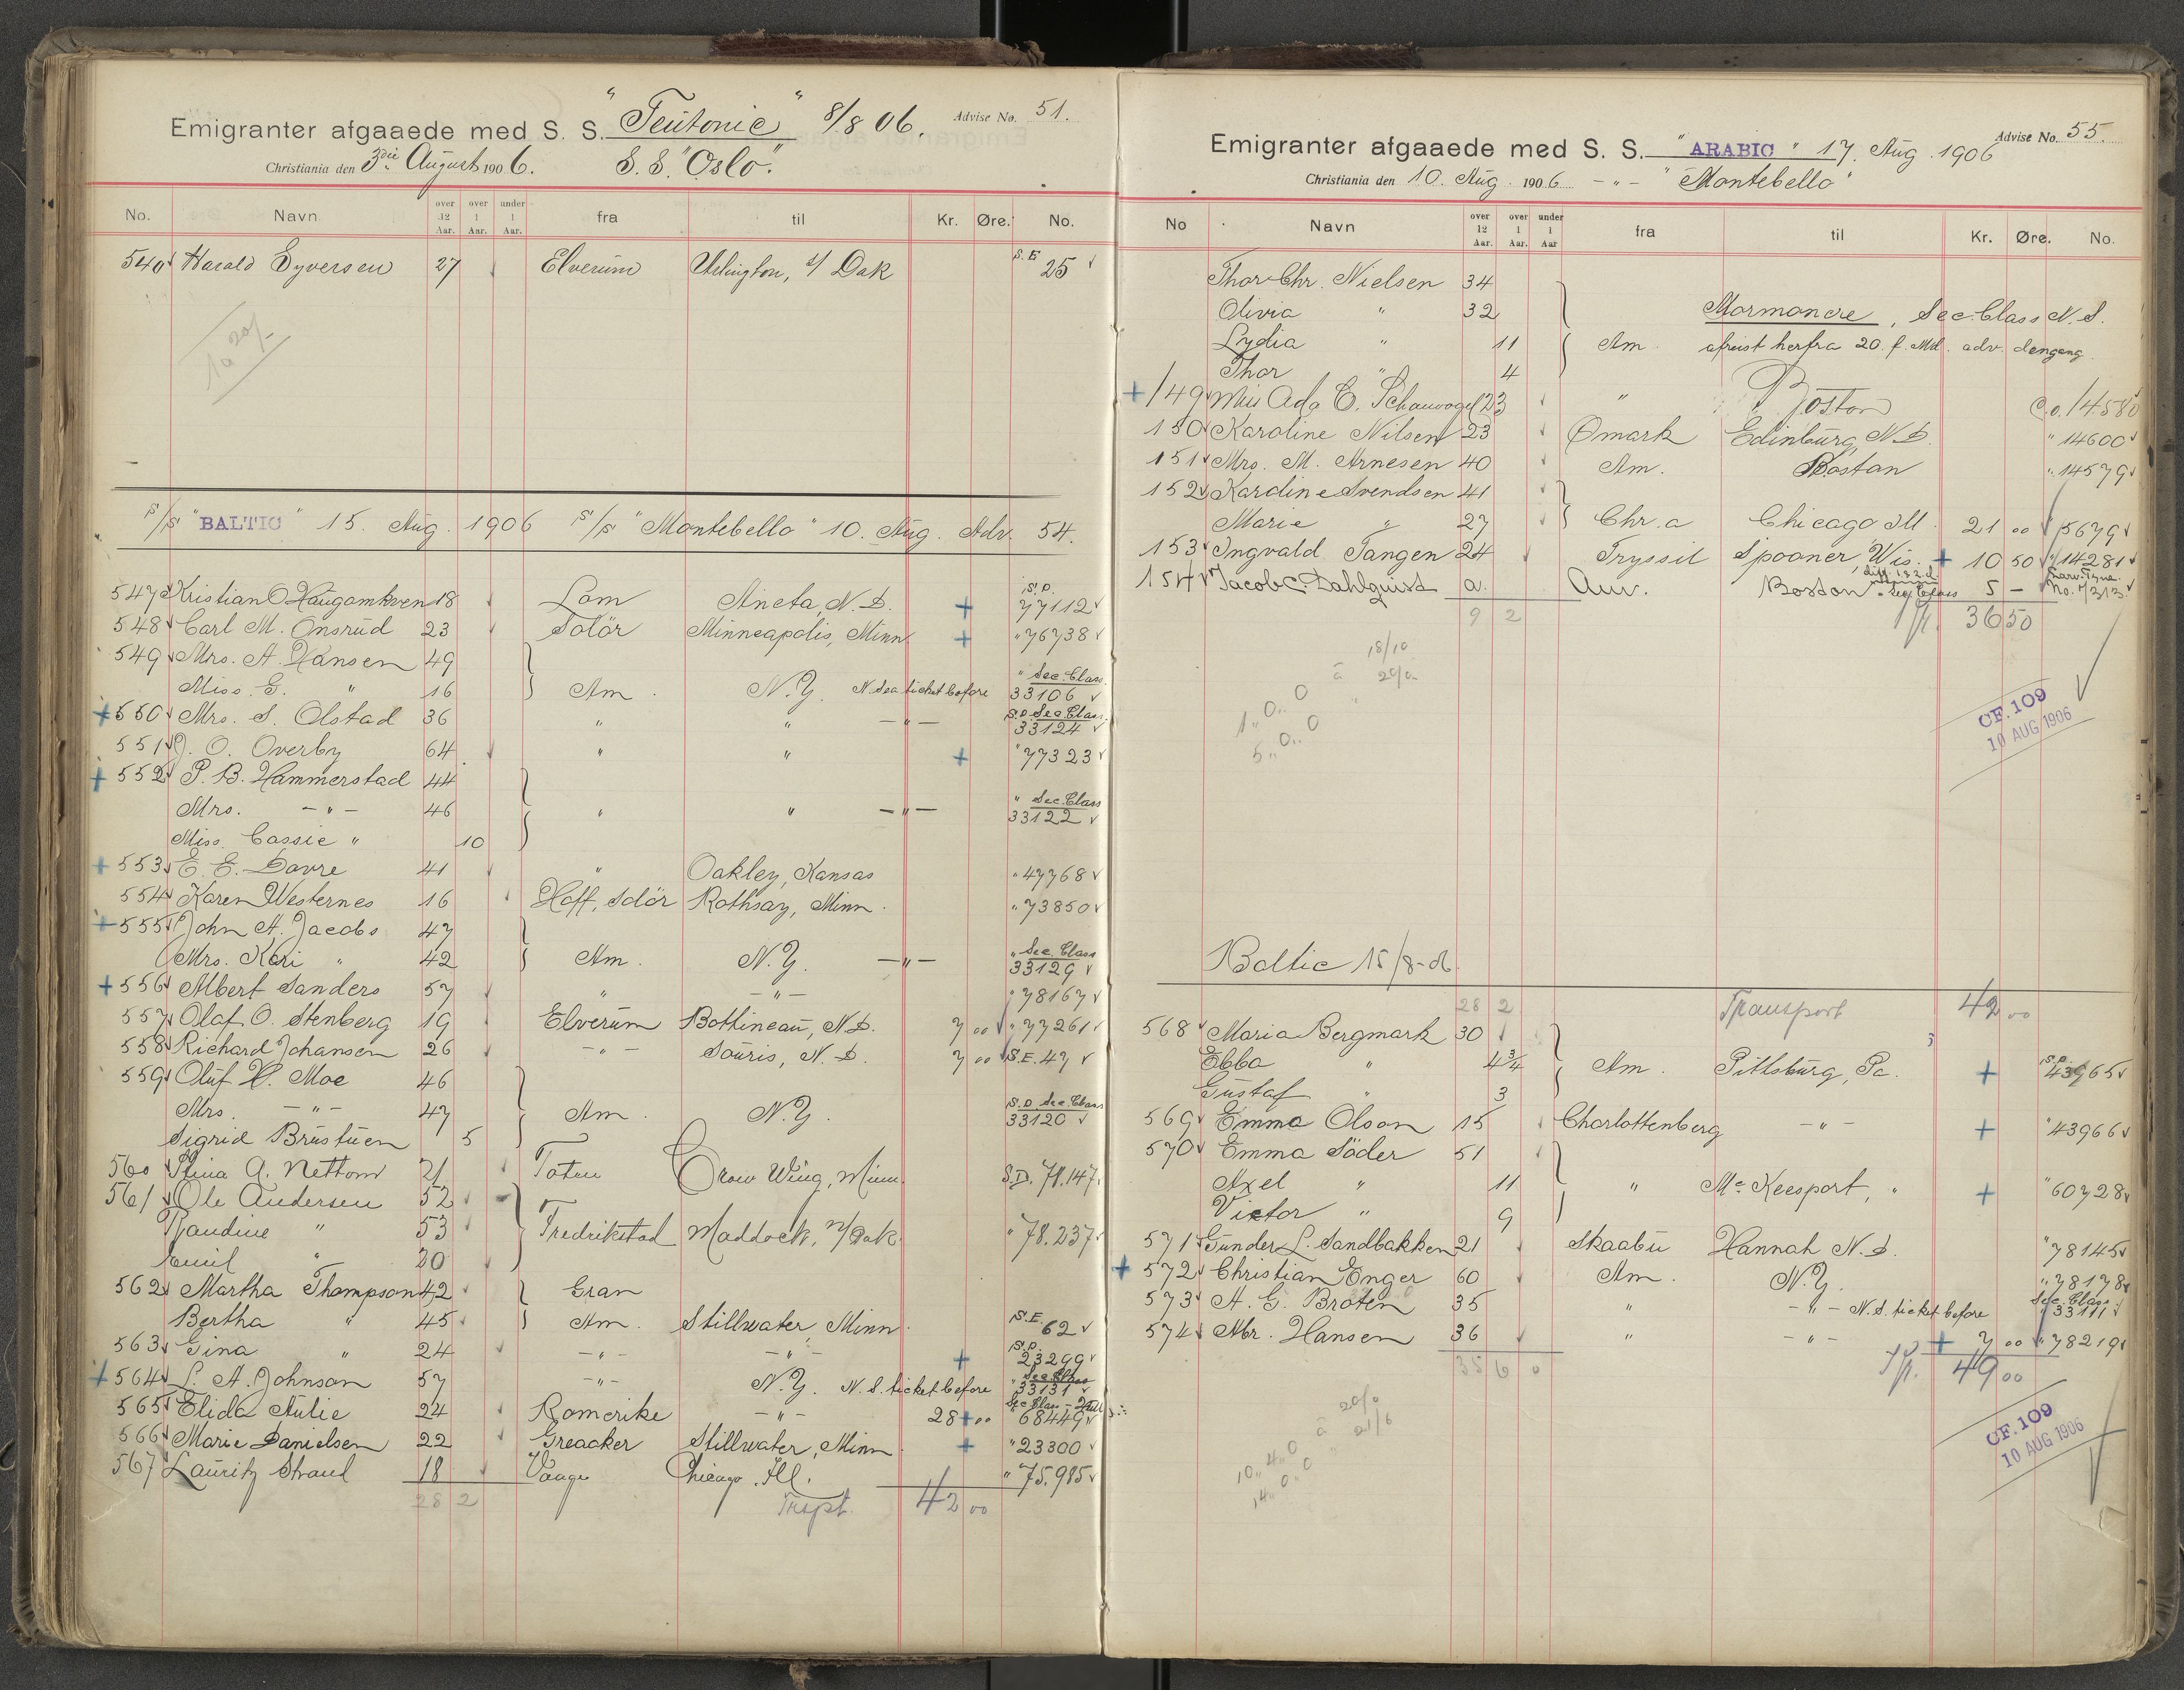 Emigranter afgaaede med S. S. "Teutonic" 8/8 06. Advise No. 51.
Christiania den 3die August 1906. S. S. "Oslo".
No. Navn over 12 Aar. over 1 Aar. under 1 Aar. fra til Kr. Øre. No.
540 Harald Syversen 27 Elverum Arlington, S/ Dak S.E. 25
S/S "BALTIC" 15. Aug. 1906 S/S "Montebello" 10. Aug. Adv. 54.
547 Kristian O Haugamkven 18 Lom Aneta, N. D. + S.D. 77112
548 Carl M. Onsrud 23 Solör Minneapolis, Minn + " 76738
549 Mrs. A. Hansen 49
Miss. G. " 16 Am. N. Y. N Sea ticket before " Sec. Class. 33106
+ 550 Mrs. S. Olstad 36 " " — " — S.D. Sec Class. 33124
551 J. O. Overby 64 " " + " 77323
+ 552 P. B. Hammerstad 44
Mrs. - " - 46 " " — " — " Sec. Class 33122
Miss. Cassie " 10
+ 553 E. E. Davre 41 " Oakley, Kansas " 47768
554 Karen Westernes 16 Hoff, Solör Rothsay, Minn. " 73850
+ 555 John A. Jacobs 47
Mrs. Kari " 42 Am. N. Y. — " — " Sec. Class 33129
+ 556 Albert Sanders 57 " - " - " 78167
557 Olaf O. Stenberg 19 Elverum Bottineau, N. D. 7 00 " 77261
558 Richard Johansen 26 - " - Souris, N. D. 7 00 S.E. 47
559 Oluf H. Moe 46
Mrs. - " - 47 Am. N. Y. S.D Sec Class 33120
Sigrid Brustuen 5
560 Stina A. Nettom 21 Toten Crow Wing, Minn. S.D. 78.147.
561 Ole Andersen 52
Randine " 53 Fredrikstad Maddock, N/Dak. " 78.237.
Emil " 20
562 Martha Thompson 42 Gran
Bertha " 45 Am. Stillwater, Minn. S.E. 62
563 Gina " 24 - " - - " - + S.D. 23299
+ 564 L. A. Johnson 57 - " - N. Y. N. S. ticket before " Sec Class 33131
565 Elida Aulie 24 Romerike - " - 28 + 00 Sec Class - " 68449
566 Marie Danielsen 22 Greacker Stillwater, Minn. + " 23300
567 Lauritz Strand 18 Vaage Chicago. Ill. " 75.985
28 2 Trspt. 42 00
Emigranter afgaaede med S. S. "ARABIC" 17. Aug. 1906 Advise No. 55.
Christiania den 10. Aug. 1906 - " - "Montebello"
No Navn over 12 Aar. over 1 Aar. under 1 Aar fra til Kr. Øre. No.
Thor Chr. Nielsen 34
Olivia " 32 Mormonere, Sec. Class N. S.
Lydia " 11 Am. afreist herfra 20. f. Md. adv. dengang.
Thor " 4
+ 149 Miss Ada C. Schauvogel 23 " Boston C.o. 14580
150 Karoline Nilsen 23 Ømark Edinburg, N. D. " 14600
151 Mrs. M. Arnesen 40 Am. Boston " 14579
152 Karoline Svendsen 41
Marie " 27 Chr.a Chicago Ill. 21 00 15679
153 Ingvald Tangen 24 Tryssil Spooner, Wis. + 10 50 " 14281
154 Jacob C. Dahlquist a. Am. Boston 5 - No. 7313.
9 2 36 50
18/10 à 20/-
1 " 0 .. 0
5 " 0 .. 0
CF. 109
10 AUG 1906
Baltic 15/8-06.
28 2 Transport 42 00
568 Maria Bergmark 30
Ebba " 4 3/4 Am. Pittsburg, Pa. + S.D. 43965
Gustaf " 3
569 Emma Olson 15 Charlottenberg - " - + " 43966
570 Emma Söder 51
Axel " 11 " Mc Keesport, " + " 60728
Victor " 9
571 Gunder L. Sandbakken 21 Skaabu Hannah N. D. " 78145
+ 572 Christian Enger 60 Am. N. Y. " 78178
573 A. G. Broten 35 " - " - N. S. ticket before Sec. Class. " 33111
574 Mr. Hansen 36 " - " - + 7 00 " 78219
35 6 0 49 00
20/0
à 21/6
10 .. 4 .. 0
14 .. 0 .. 0
CF. 109
10 AUG 1906